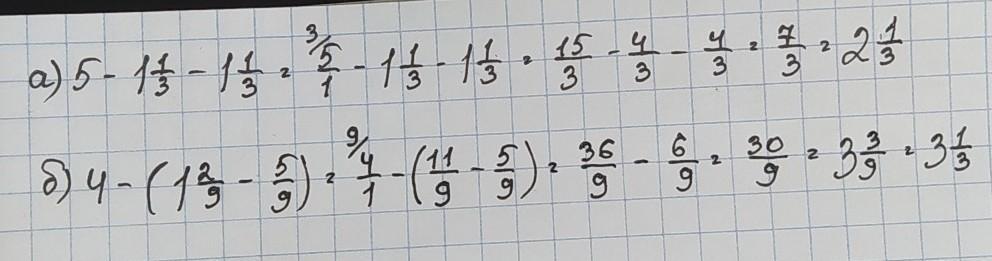 а) 5 - 1 1/3 - 1 1/3 = 3/ 5/1 - 1 1/3 - 1 1/3 = 15/3 - 4/3 - 4/3 = 7/3 = 2 1/3
б) 4 - (1 2/9 - 5/9) = 9/ 4/1 - (11/9 - 5/9) = 36/9 - 6/9 = 30/9 = 3 3/9 = 3 1/3